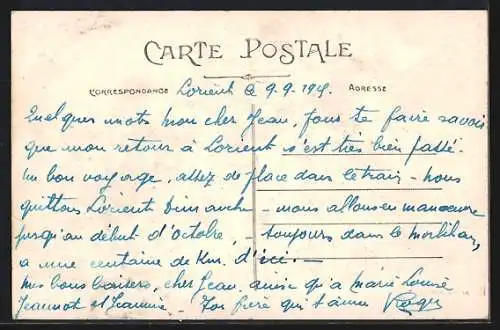 CARTE POSTALE
CORRESPONDANCE
ADRESSE
Lorient le 9.9.194.
Quelques mots mon cher Jean, pour te faire savoir
que mon retour à Lorient s'est très bien passé.
Un bon voyage, assez de place dans le train - nous
quittons Lorient Dimanche - nous allons en manoeuvre
jusqu'au début d'octobre, - toujours dans le Morbihan,
à une centaine de Km. d'ici. -
Mes bons baisers, cher Jean, ainsi qu'a Marie Louise
Jeannot et Jeannine. Ton frère qui t'aime Roger